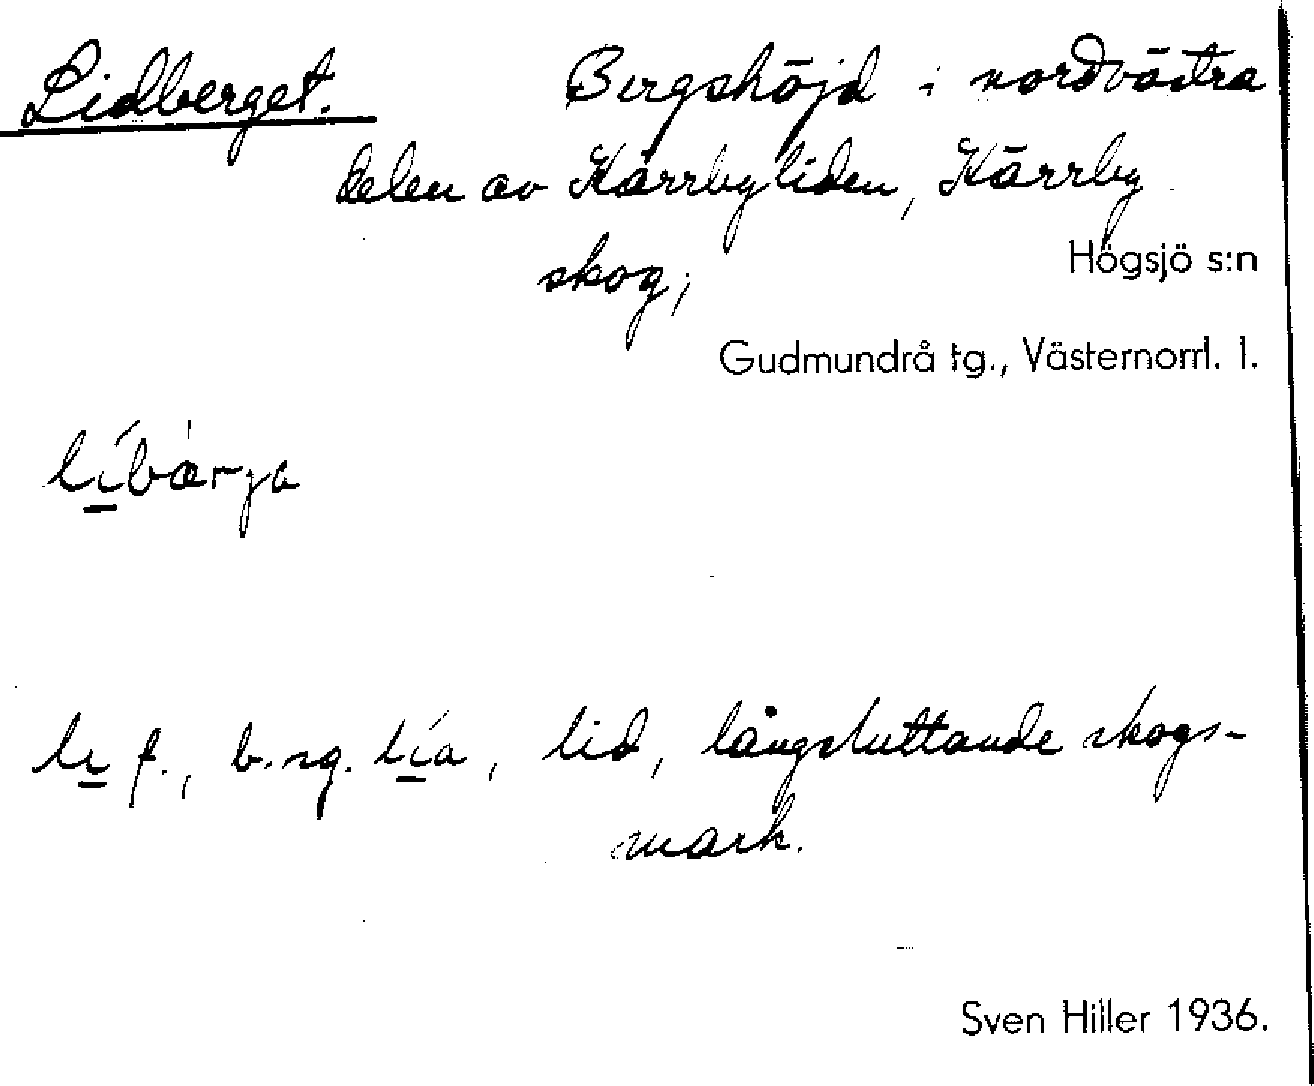 Lidberget. Bergshöjd i nordvästra
delen av Kärrbyliden, Kärrby
skog;
Högsjö s:n
Gudmundrå tg., Västernorrl. l.
li̱´bär̀ja
li̱ f., b. sg. li̱´a, lid, långsluttande skogs-
mark.
Sven Hiller 1936.